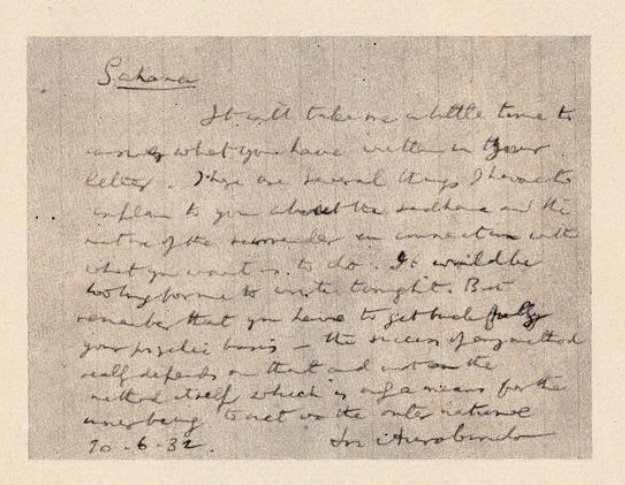 Sahana
It will take me a little time to
answer what you have written in your
letter. There are several things I have to
explain to you about the sadhana and the
nature of the surrender in connection with
what you want us to do. It would be
too long for me to write tonight. But
remember that you have to get back fully
your psychic basis — the success of any method
really depends on that and not on the
method itself which is only a means for the
inner being to act on the outer nature
20-6-32. Sri Aurobindo